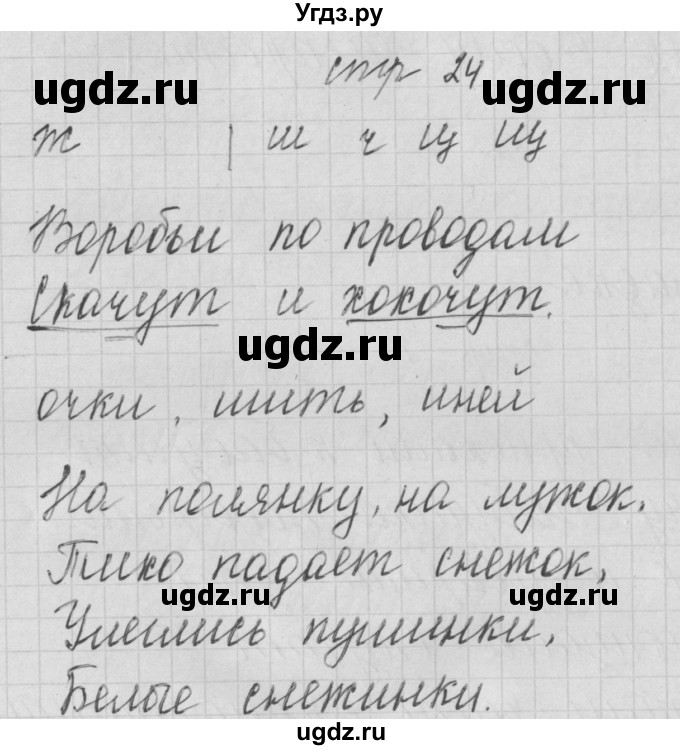 Угдз.ру
стр 24
ugdz.ru ugdz.ru
ж | ш ч ц щ
Воробьи по проводам
Скачут и хохочут.
ugdz.ru
очки, шить, иней
На полянку, на лужок.
Тихо падает снежок,
ugdz.ru ugdz.ru
Улеглись пушинки,
Белые снежинки.
ugdz.ru